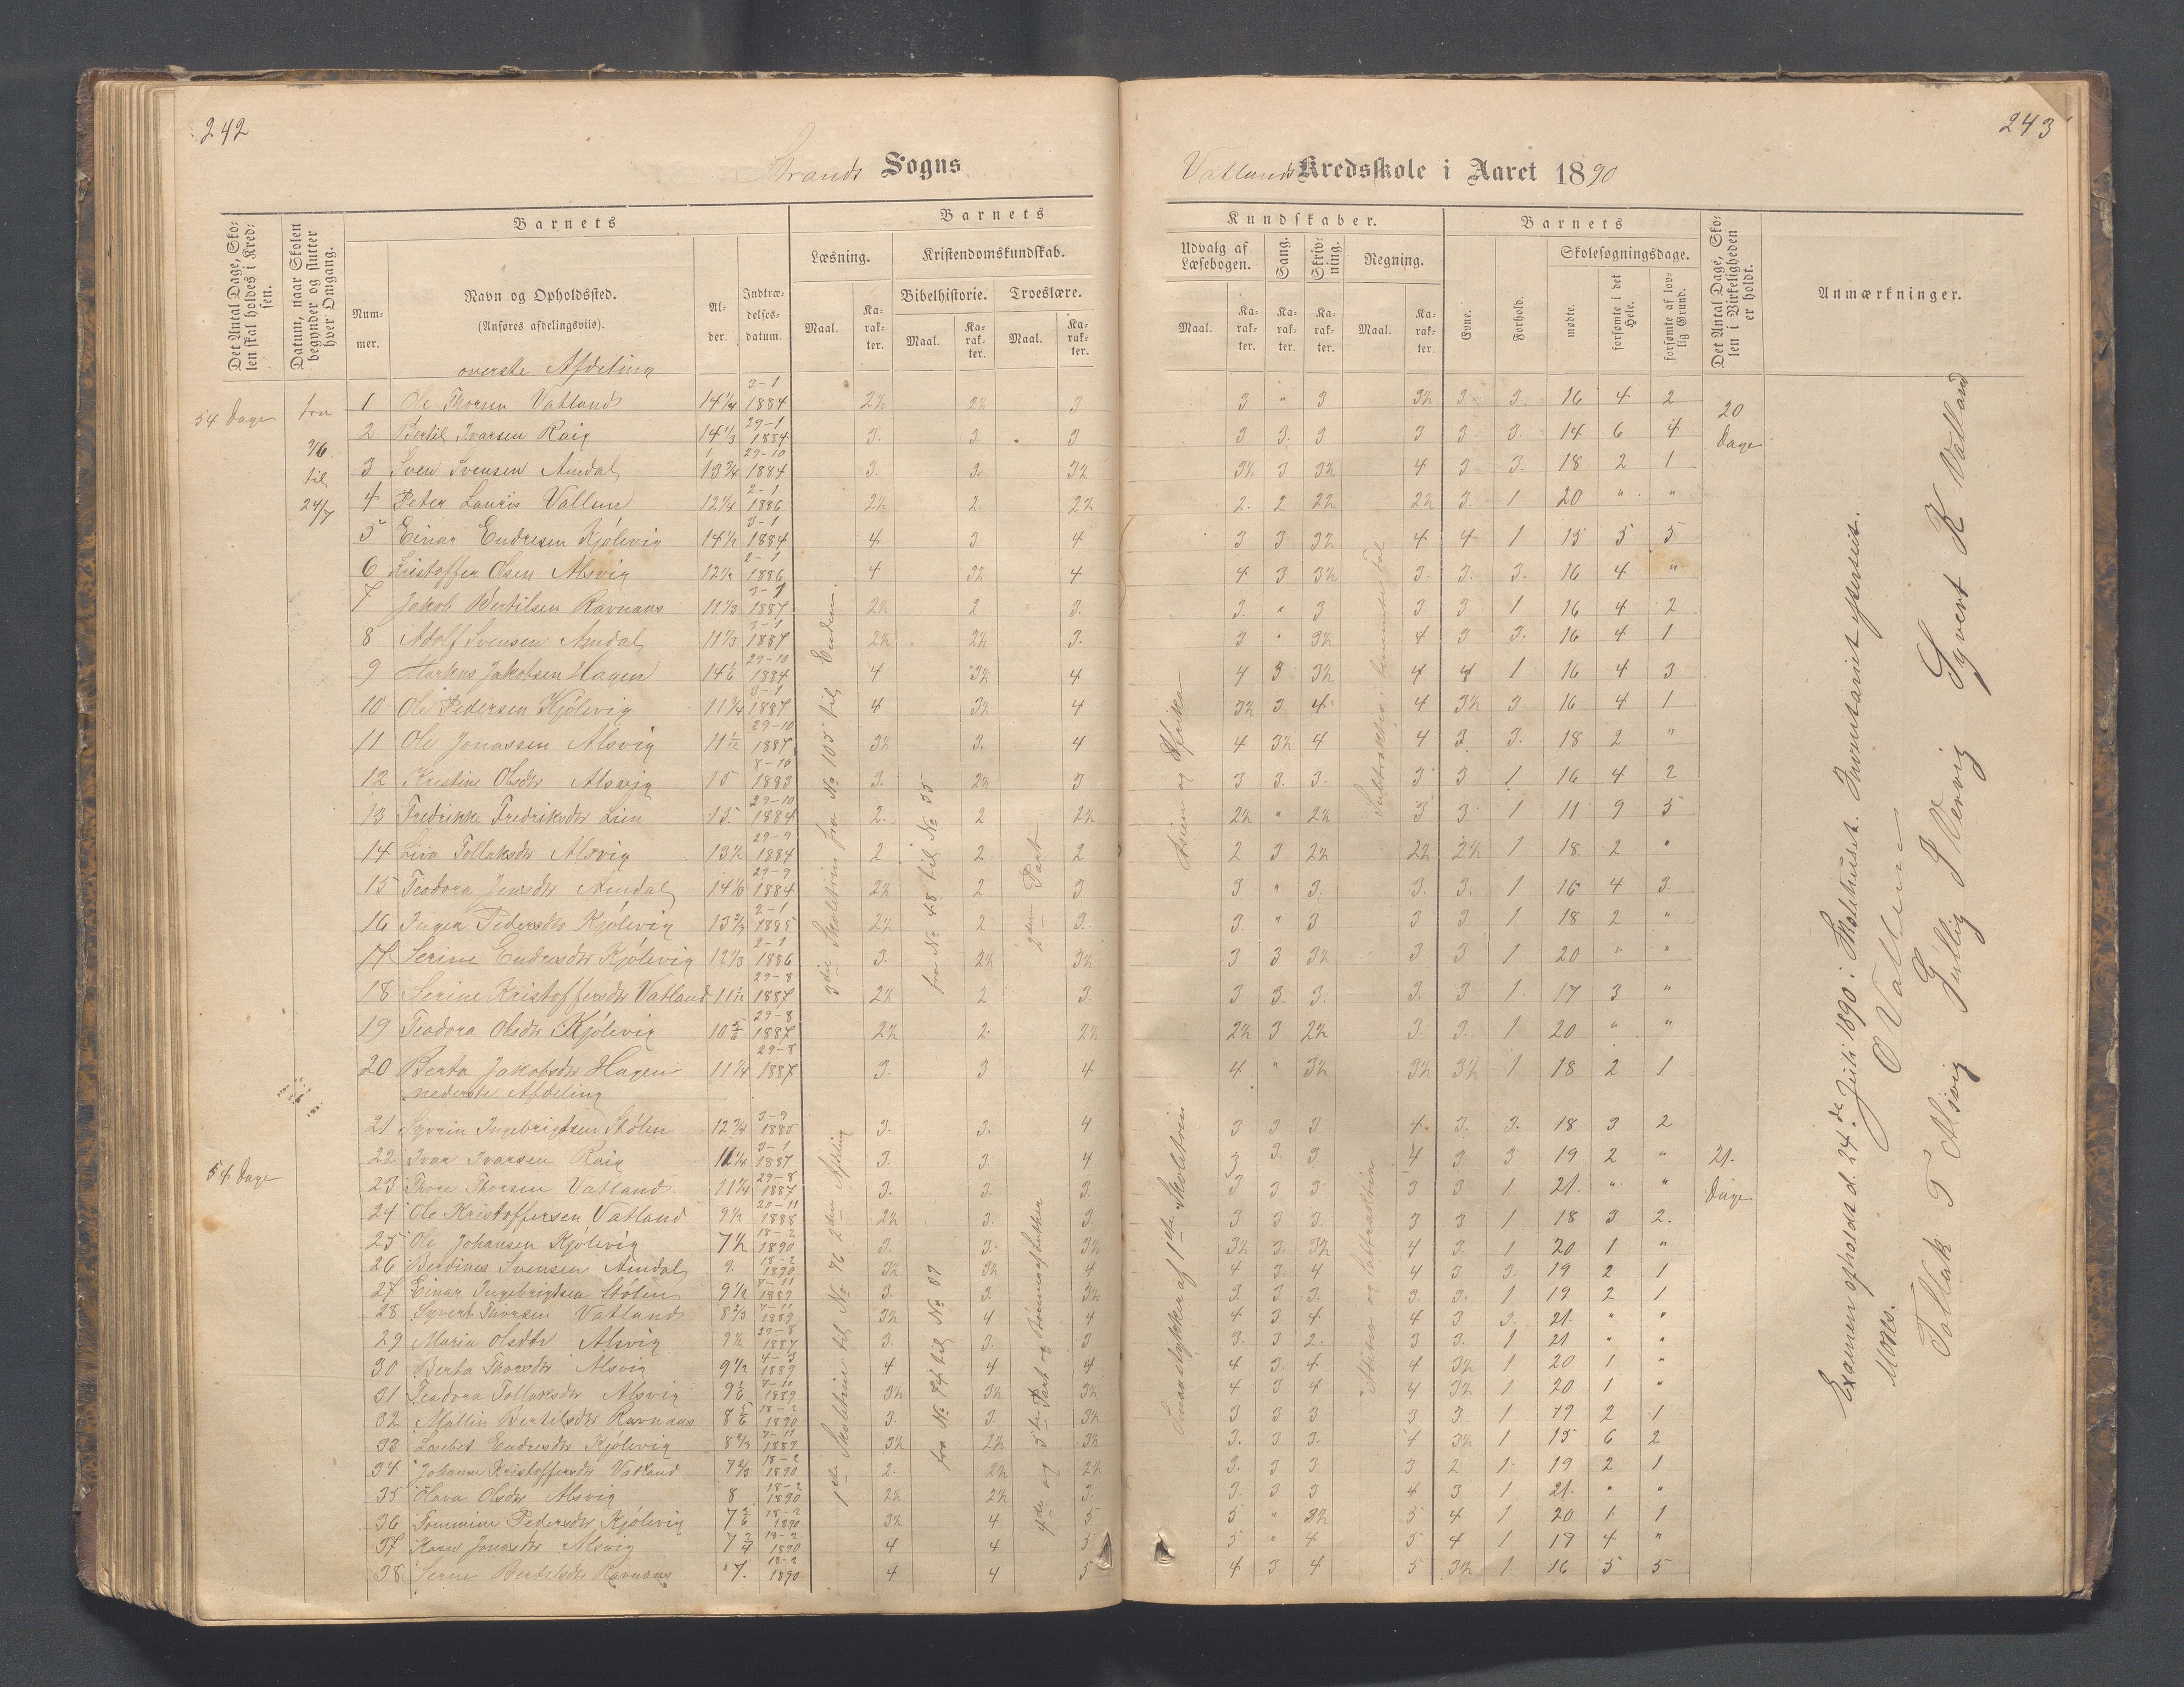 242
243
Strands Sogns
Vatlands Kredsskole i Aaret 1890
Det Antal Dage, Skolen skal holdes i Kredsen.
Datum, naar Skolen begynder og slutter hver Omgang.
Barnets
Nummer.
Navn og Opholdssted.
(Anføres afdelingsviis).
Alder.
Indtrædelsesdatum.
Barnets
Læsning.
Maal.
Karakter.
Kristendomskundskab.
Bibelhistorie.
Maal.
Karakter.
Troeslære.
Maal.
Karakter.
Kundskaber.
Udvalg af Læsebogen.
Maal.
Karakter.
Sang.
Karakter.
Skrivning.
Karakter.
Regning.
Maal.
Karakter.
Barnets
Evne.
Forhold.
Skolesøgningsdage.
mødte.
forsømte i det Hele.
forsømte af lovlig Grund.
Det Antal Dage, Skolen i Virkeligheden er holdt.
Anmærkninger.
overste Afdeling
54 Dage fra
til
24/7
1 Ole Thorsen Vatland 14 1/4 3-1 1884 2½ 2½ 3 3 " 3 3½ 3 3. 16 4 2
20 Dage
2 Bertil Ivarsen Raig 14 1/3 29-1 1884 3. 3. 3 3 3. 3 3 3 3. 14 6 4
3 Sven Svensen Amdal 13 3/4 29-10 1884 3. 3. 3½ 3½ 3 3½ 4 3 3. 18 2 1
4 Peter Lauris Vallum 12 1/4 2-1 1886 2½ 2. 2½ 2. 2 2½ 2½ 3. 1 20 " "
5 Einar Endresen Kjølevig 14 1/2 3-1 1884 4 3 4 3 3 3½ 4 4 1 15 5 5
6 Kristoffer Olsen Alsvig 12 1/2 2-1 1886 4 3½ 4 4 3 3½ 3. 3. 3. 16 4 "
7 Jakob Bertilsen Ravnaas 11 1/3 3-1 1887 2½ 2 3. 3. " 3 3 3 1 16 4 2
8 Adolf Svensen Amdal 11 1/3 3-1 1887 2½ 2½ 3. 3 " 3½ 4 3 3. 16 4 1
9 Markus Jakobsen Hagen 14 1/6 29-10 1884 4 3½ 4 4 3 3½ 4 4 1 16 4 3
10 Ole Pedersen Kjølevig 11 3/4 3-1 1887 4 3½ 4 3½ 3 4 4 3½ 3. 16 4 1
11 Ole Jonassen Alsvig 11 1/2 29-10 1887 3½ 3. 4 4 3½ 4 4 3 3. 18 2 "
12 Kristine Olsdtr Alsvig 15 8-10 1883 3. 2½ 3 3 3. 3. 3 3 1 16 4 2
13 Fredrikke Fredriksdtr Lien 15. 29-10 1884 2. 2 2½ 2½ " 2½ 3 3 1 11 9 5
14 Liva Tollaksdtr Alsvig 13 1/2 29-9 1884 2 2 2 2 3 2½ 2½ 2½ 1 18 2 "
15 Teodora Jensdtr Amdal 14 1/6 29-9 1884 2½ 2 3 3 " 3. 3. 3. 1 16 4 3
16 Inger Pedersdtr Kjølevig 13 2/3 2-1 1885 2½ 2 3. 3. " 3 3 3 1 18 2 "
17 Serine Endresdtr Kjølevig 12 1/3 2-1 1886 3. 2½ 3½ 3 3 3½ 3 3 1 20 " "
18 Serine Kristoffersdtr Vatland 11 1/2 29-8 1887 2½ 2 3. 3 3. 3. 3. 3 1. 17 3 "
19 Teodora Olsdtr Kjølevig 10 5/6 29-8 1887 2½ 2. 2½ 2½ 3 2½ 3. 3. 1 20 " "
20 Berta Jakobsdtr Hagen 11 1/4 29-8 1887 3. 3 4 4 " 3½ 3½ 3½ 1 18 2 1
nederste Afdeling
21 Syvrin Ingebrigtsen Stølen 12 3/4 3-9 1885 3. 3. 4 3 3 3 4. 3. 3. 18 3 2
22 Ivar Ivarsen Raig 11 1/4 3-1 1887 3. 3. 4 3 3. 3 4 3 3 19 2 "
54 Dage
21. Dage
23 Thore Thorsen Vatland 11 1/4 29-8 1887 3. 3. 3. 3 3 3 3 3 1 21. " "
24 Ole Kristoffersen Vatland 9 1/2 20-11 1888 2½ 3. 3. 3 3 3. 3 3 1 18 3 2.
25 Ole Johansen Kjølevig 7 1/2 18-2 1890 3. 3. 3½ 3½ 3. 3½ 4 3. 1 20 1 "
26 Berdines Svensen Amdal 9. 18-2 1890 3½ 3½ 4 4 3. 4 4 3 3. 19 2 1
27 Einar Ingebrigtsen Stølen 9 1/2 7-11 1889 3. 3. 3½ 3 3 3. 3. 3. 1 19 2 1
28 Syvert Thorsen Vatland 8 2/3 7-11 1889 3½ 4 4 4 3 4 4 3 3. 21. " "
29 Maria Olsdtr Alsvig 9 1/2 29-8 1887 3. 3. 3 3. 3 2. 3 3. 1 21 " "
30 Berta Thorsdtr Alsvig 9 1/2 4-3 1889 4 4 4 4 3. 4 4 3½ 1 20 1 "
31 Teodora Tollaksdtr Alsvig 9 1/6 7-11 1889 3½ 3½ 3½ 4 3 4 4 3½ 1 20 1 "
32 Mallin Bertilsdtr Ravnaas 8 5/6 18-2 1890 3. 3. 3½ 3 3 3 3 3 1 19 2 1
33 Lisebet Endresdtr Kjølevig 8 2/3 7-11 1889 3½ 2½ 3½ 3. 3 3. 4 3½ 1 15 6 2
34 Johanne Kristoffersdtr Vatland 7 2/3 18-2 1890 2. 2½ 2½ 3. 3 3 3 2 1. 19 2 1
35 Olava Olsdtr Alsvig 8 18-2 1890 2½ 2½ 3. 3. 3 3 4 3 1 21. " "
36 Tommine Pedersdtr Kjølevig 7 5/6 18-2 1890 3½ 4 5 5 " 3½ 5 4 1 20 1 1
37 Karen Jonasdtr Alsvig 7 3/4 18-2 1890 4 4 5 5 " 4 5 4 1 17 4 "
38 Serine Bertilsdtr Ravnaas 7. 18-2 1890 4 4 5 4 3 4 5 3½ 1 16 5 5
3die Skoletrin fra No 105 til Enden.
fra No 48 til No 55
2den Part
Asien og Afrika
Subtraktion i benævnte Tal
1ste Skoletrin til No 76 2den Afdeling
fra No 74 til No 87
4de og 5te Part og Bønnen af Luther
Smaastykker af 1ste Skoletrin
Addition og Subtraktion
Examen afholdt d. 24de Juli 1890 i Skolehuset. Inventariet efterseet.
O Vallum
Mons.
Tollak T Alsvig Gulleig S Nervig Syvert K Vatland